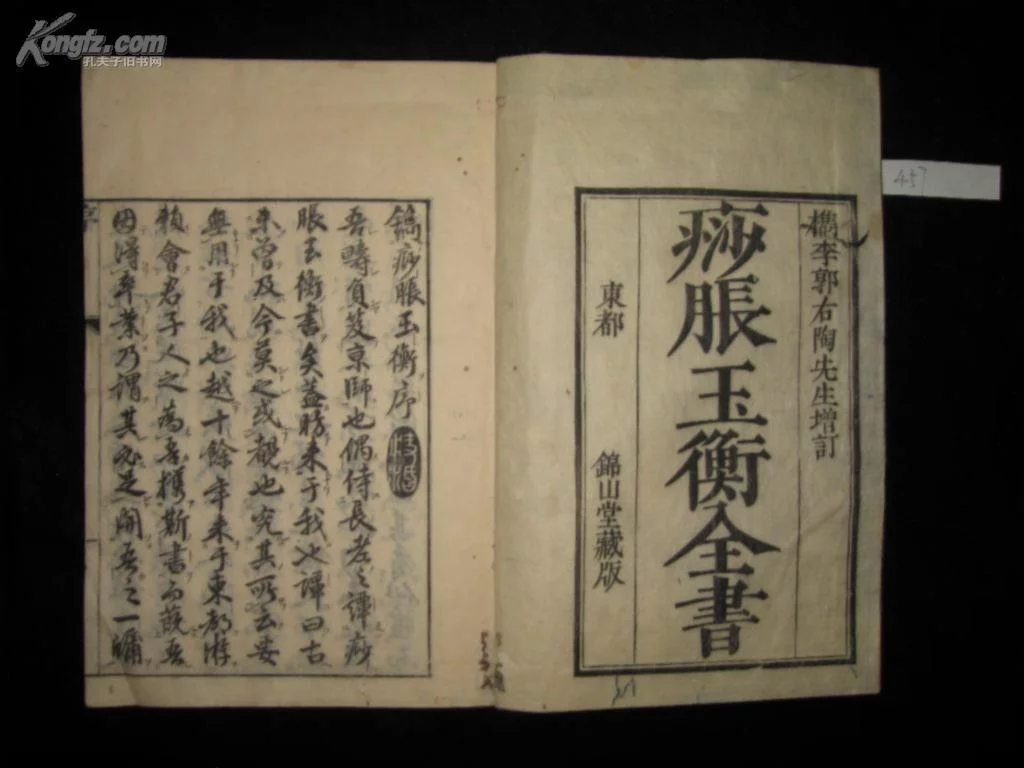 Kongfz.com
孔夫子旧书网
457
檇李郭右陶先生增訂
痧脹玉衡全書
東都 錦山堂藏版
鐫痧脹玉衡序
吾疇負笈京師也偶侍長老之譚痧
脹玉衡書矣益昉来于我也譚曰古
来曽及今莫之或觀也究其所云妄
無用于我也越十餘年来于東都游
賴會君子人之為吾授斯書而
因得卒業乃謂其必足開吾之一牖
序